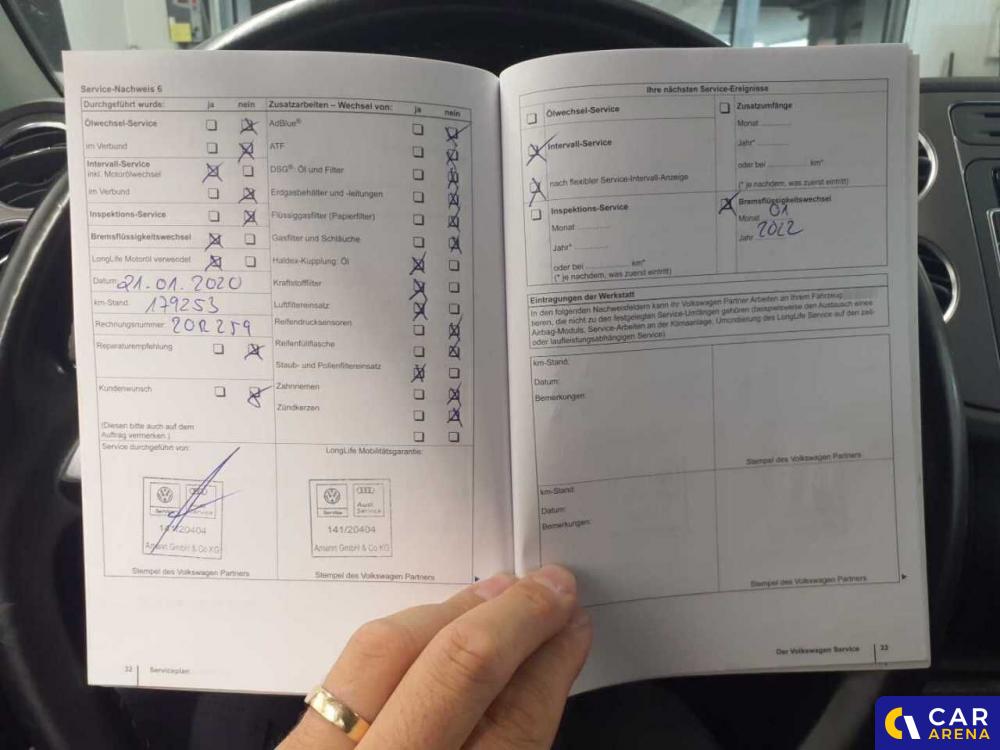 Service-Nachweis 6
Durchgeführt wurde: ja nein
Ölwechsel-Service
im Verbund
Intervall-Service
inkl. Motorölwechsel
im Verbund
Inspektions-Service
Bremsflüssigkeitswechsel
LongLife Motoröl verwendet
Datum: 21.01.2020
km-Stand: 179253
Rechnungsnummer: 20R259
Reparaturempfehlung
Kundenwunsch
(Diesen bitte auch auf dem
Auftrag vermerken.)
Zusatzarbeiten – Wechsel von: ja nein
AdBlue®
ATF
DSG®: Öl und Filter
Erdgasbehälter und -leitungen
Flüssiggasfilter (Papierfilter)
Gasfilter und Schläuche
Haldex-Kupplung: Öl
Kraftstofffilter
Luftfiltereinsatz
Reifendrucksensoren
Reifenfüllflasche
Staub- und Pollenfiltereinsatz
Zahnriemen
Zündkerzen
Service durchgeführt von:
Service Service
141/20404
Amann GmbH & Co KG
Stempel des Volkswagen Partners
LongLife Mobilitätsgarantie:
Service
Audi
Service
141/20404
Amann GmbH & Co KG
Stempel des Volkswagen Partners
32 Serviceplan
Ihre nächsten Service-Ereignisse
Ölwechsel-Service
Intervall-Service
nach flexibler Service-Intervall-Anzeige
Inspektions-Service
Monat ............
Jahr* ............
oder bei .................. km*
(* je nachdem, was zuerst eintritt)
Zusatzumfänge
Monat ............
Jahr* ............
oder bei .................. km*
(* je nachdem, was zuerst eintritt)
Bremsflüssigkeitswechsel
Monat 01
Jahr 2022
Eintragungen der Werkstatt
In den folgenden Nachweisfeldern kann Ihr Volkswagen Partner Arbeiten an Ihrem Fahrzeug
tieren, die nicht zu den festgelegten Service-Umfängen gehören (beispielsweise den Austausch eines
Airbag-Moduls, Service-Arbeiten an der Klimaanlage, Umcodierung des LongLife Service auf den zeit-
oder laufleistungsabhängigen Service)
km-Stand:
Datum:
Bemerkungen:
Stempel des Volkswagen Partners
km-Stand:
Datum:
Bemerkungen:
Stempel des Volkswagen Partners
Der Volkswagen Service 33
CAR
ARENA